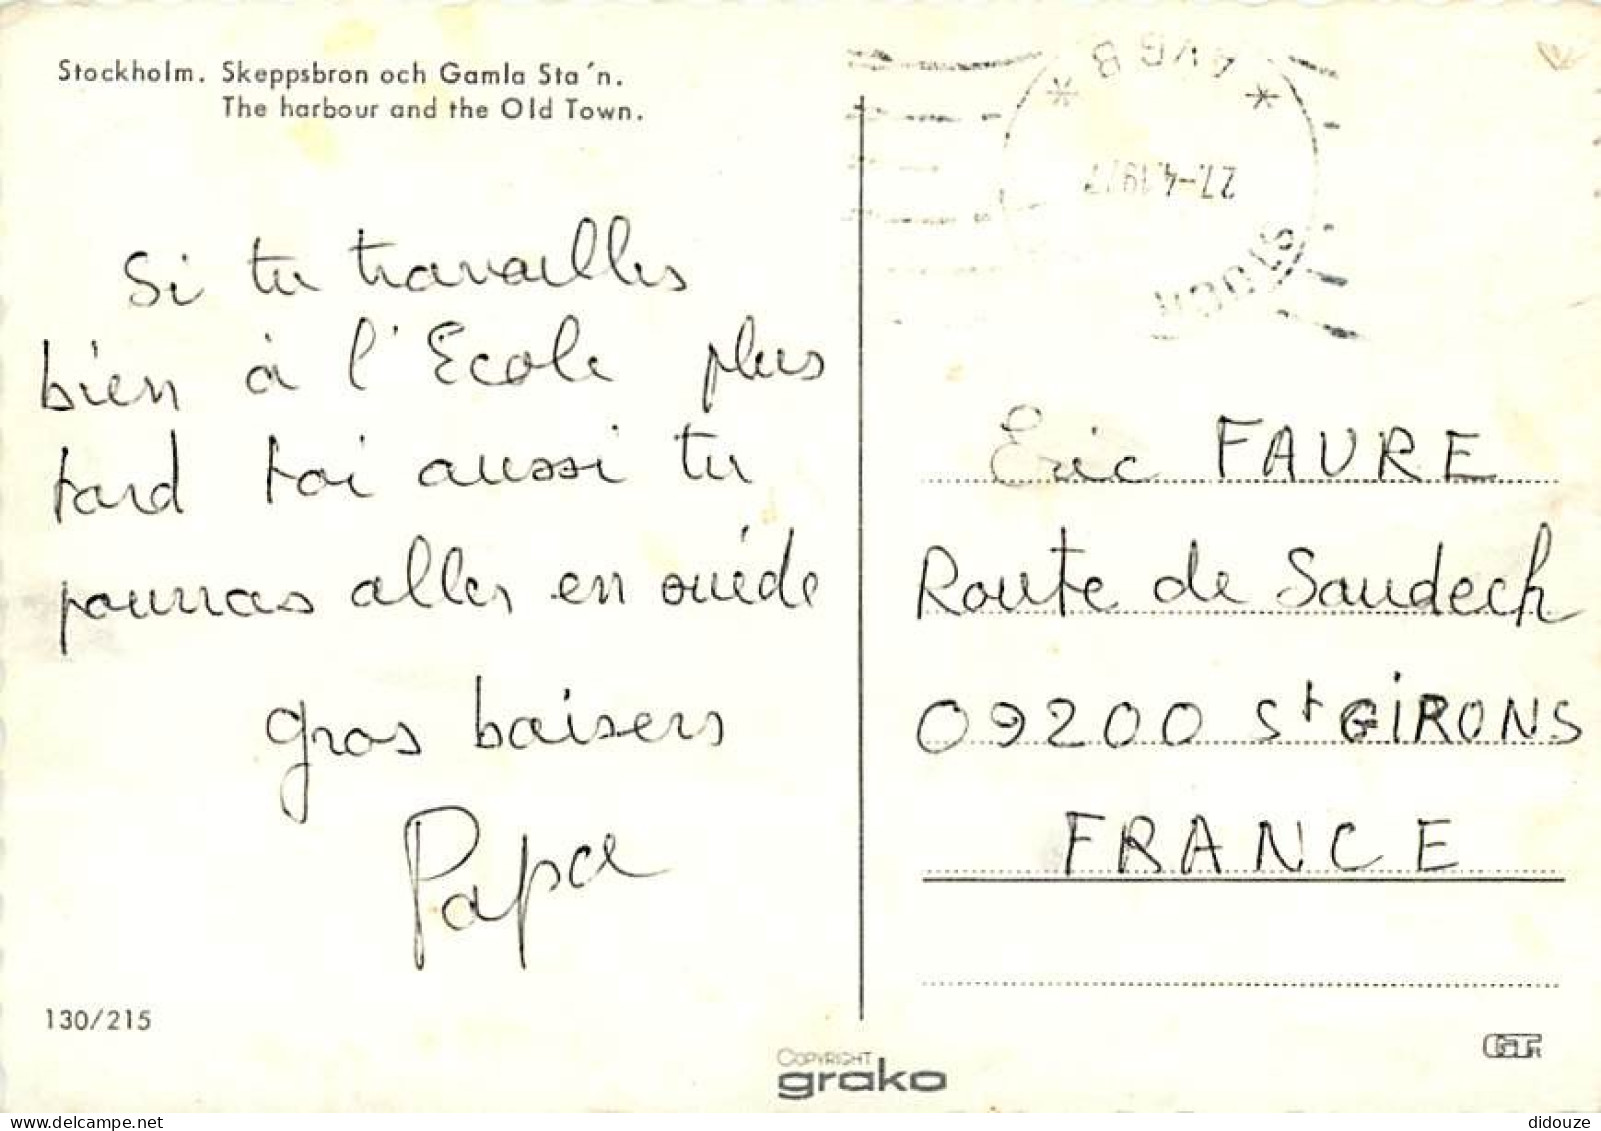 Stockholm. Skeppsbron och Gamla Sta'n.
The harbour and the Old Town.
AVG B
27.-4.1977
STOCK
Si tu travailles
bien à l'Ecole plus
tard toi aussi tu
pourras aller en suéde
gros baisers
Papa
Eric FAURE
Route de Saudech
09200 St GiRONS
FRANCE
130/215
COPYRIGHT
grako
didouze